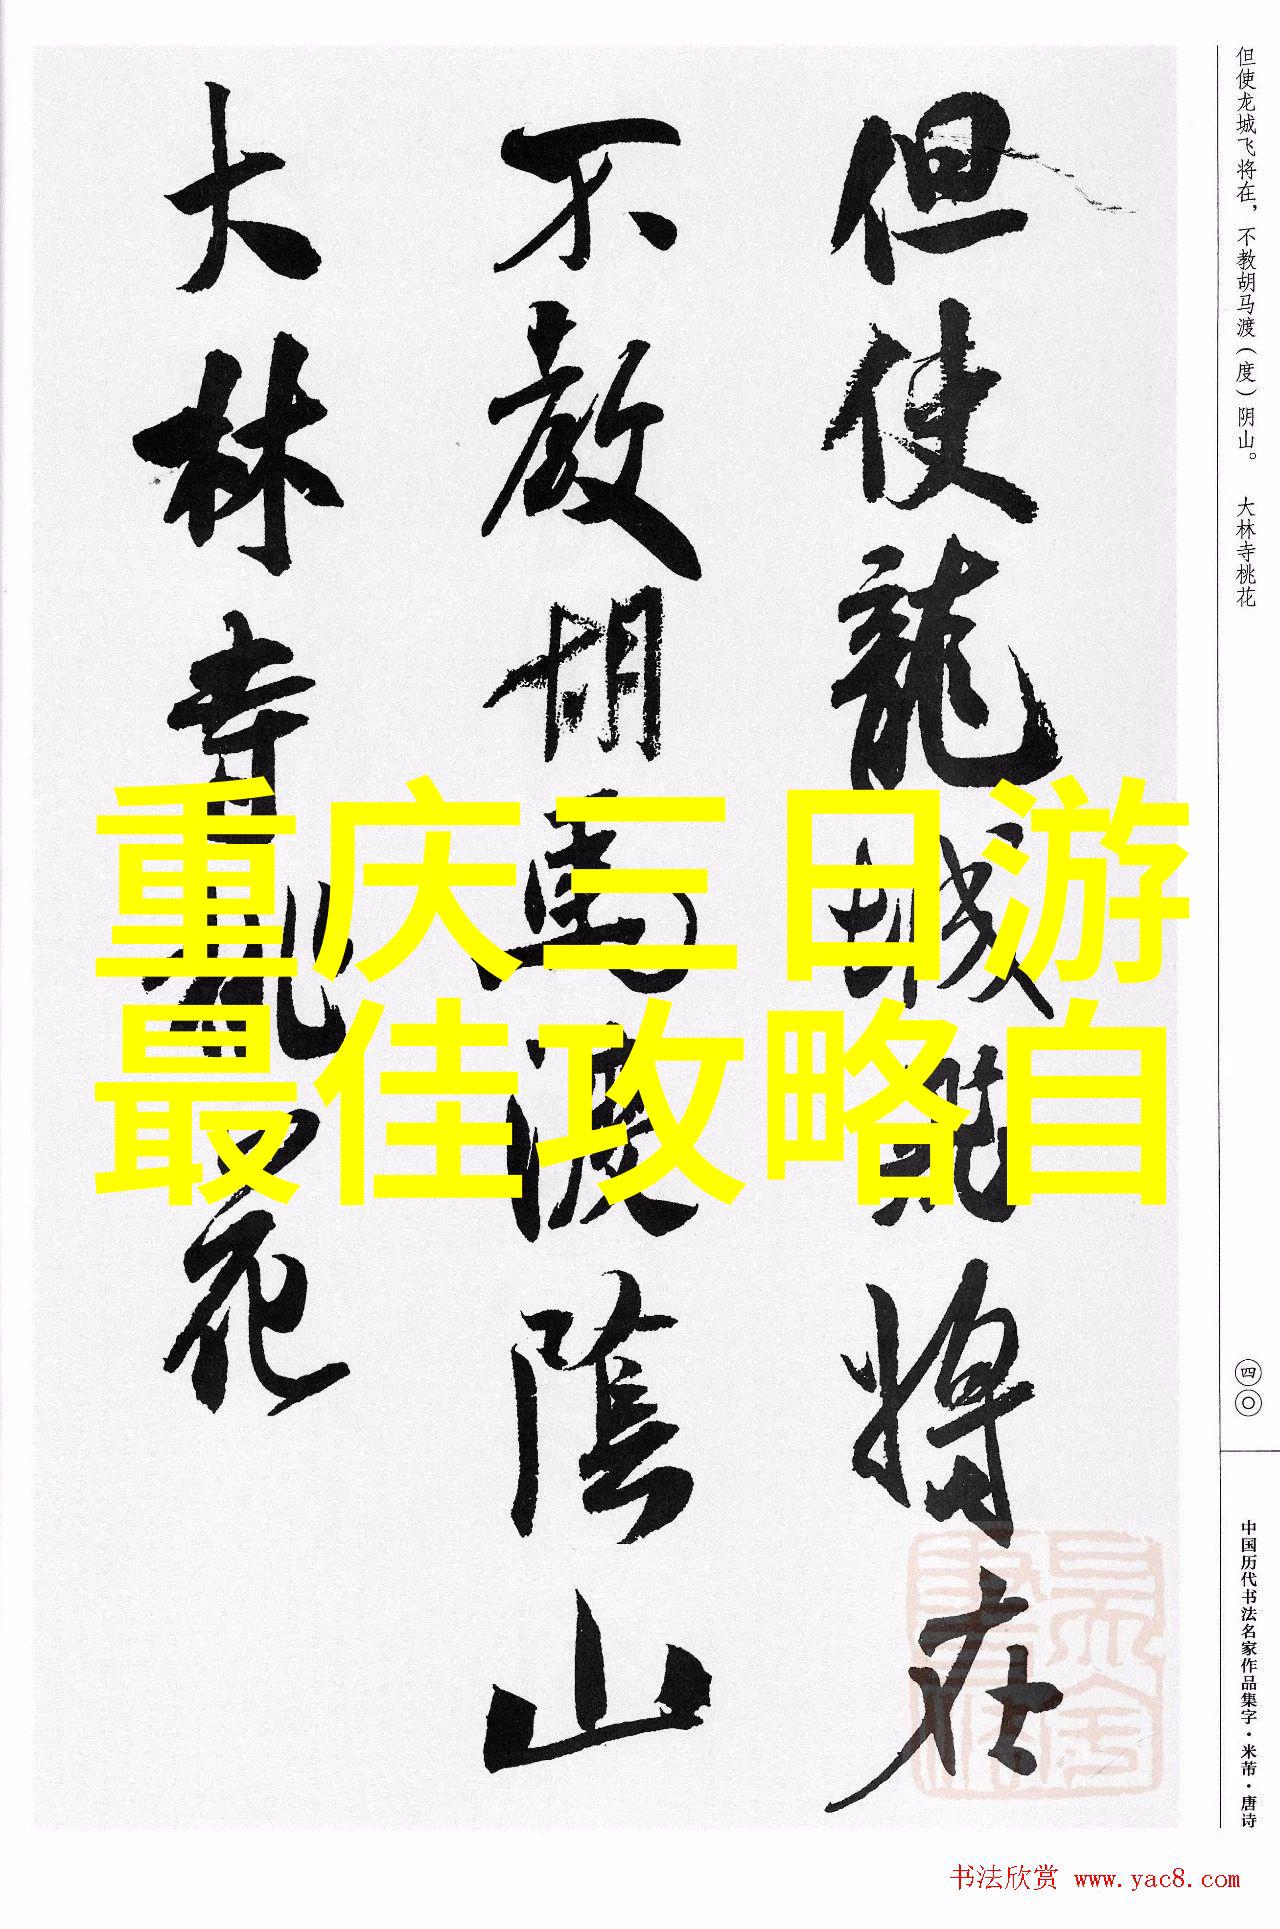 但使龙城飞将在，不教胡马渡（度）阴山。 大林寺桃花
但使龍城飛将在
不教胡馬渡陰山
大林寺桃花
重庆三日游
最佳攻略自
四〇
中国历代书法名家作品集字·米芾·唐诗
书法欣赏 www.yac8.com